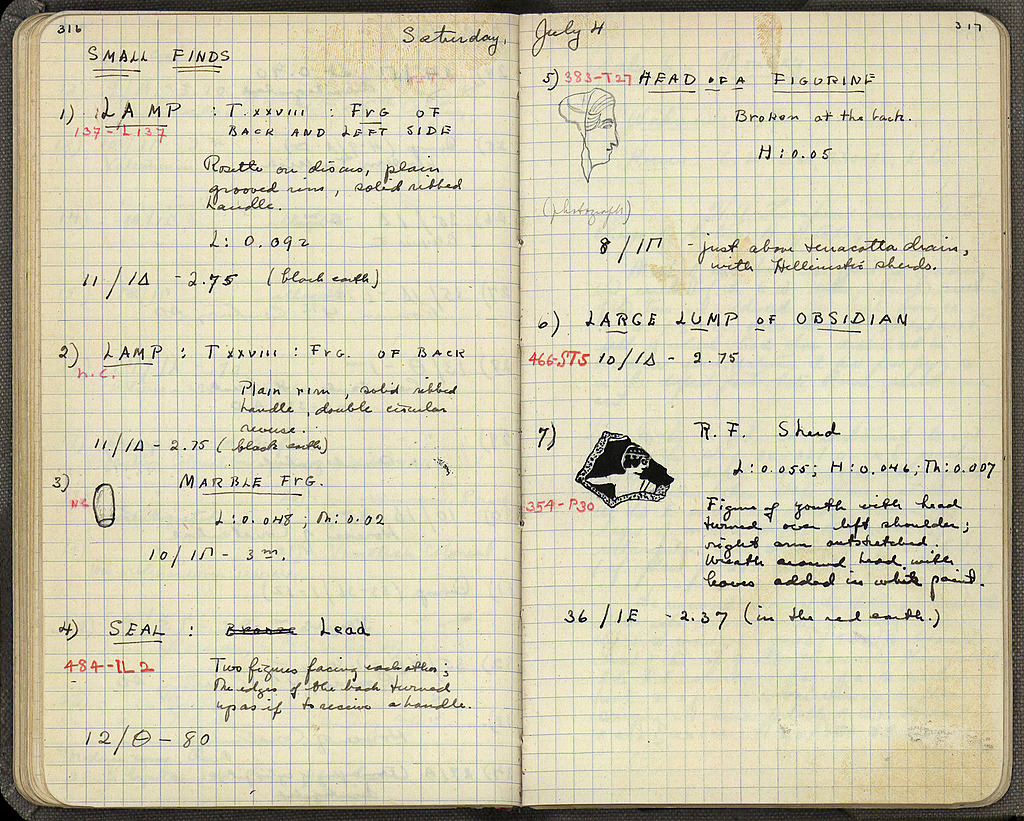 316
Saturday,
SMALL FINDS
1) LAMP : T. XXVIII : FrG OF
137-L137
BACK AND LEFT SIDE
Rosette on discus, plain
grooved rim, solid ribbed
handle.
L: 0.092
11 / 1Δ - 2.75 (black earth)
2) LAMP : T XXVIII : FrG. OF BACK
N.C.
Plain rim, solid ribbed
handle, double circular
reverse.
11/1Δ - 2.75 (black earth)
3) MARBLE FrG.
NC
L: 0.048 ; Th: 0.02
10/1Π - 3 m.
4) SEAL : Bronze Lead
484-IL2
Two figures facing each other;
The edges of the back turned
up as if to receive a handle.
12/Θ - 80
July 4
317
5) 383-T27 HEAD OF A FIGURINE
Broken at the back.
H: 0.05
(photograph)
8 / 1Π - just above terracotta drain,
with Hellenistic sherds.
6) LARGE LUMP OF OBSIDIAN
466-ST5 10/1Δ - 2.75
7) R. F. Sherd
L: 0.055; H: 0.046; Th: 0.007
354-P30
Figure of youth with head
turned over left shoulder;
right arm outstretched.
Wreath around head with
leaves added in white paint.
36 / 1E - 2.37 (in the red earth.)